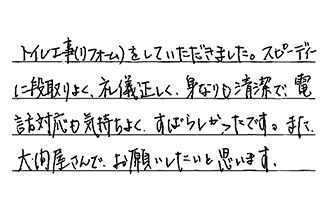 トイレ工事(リフォーム)をしていただきました。スピーディー
に段取りよく、礼儀正しく、身なりも清潔で、電
話対応も気持ちよく、すばらしかったです。また、
大内屋さんで、お願いしたいと思います。